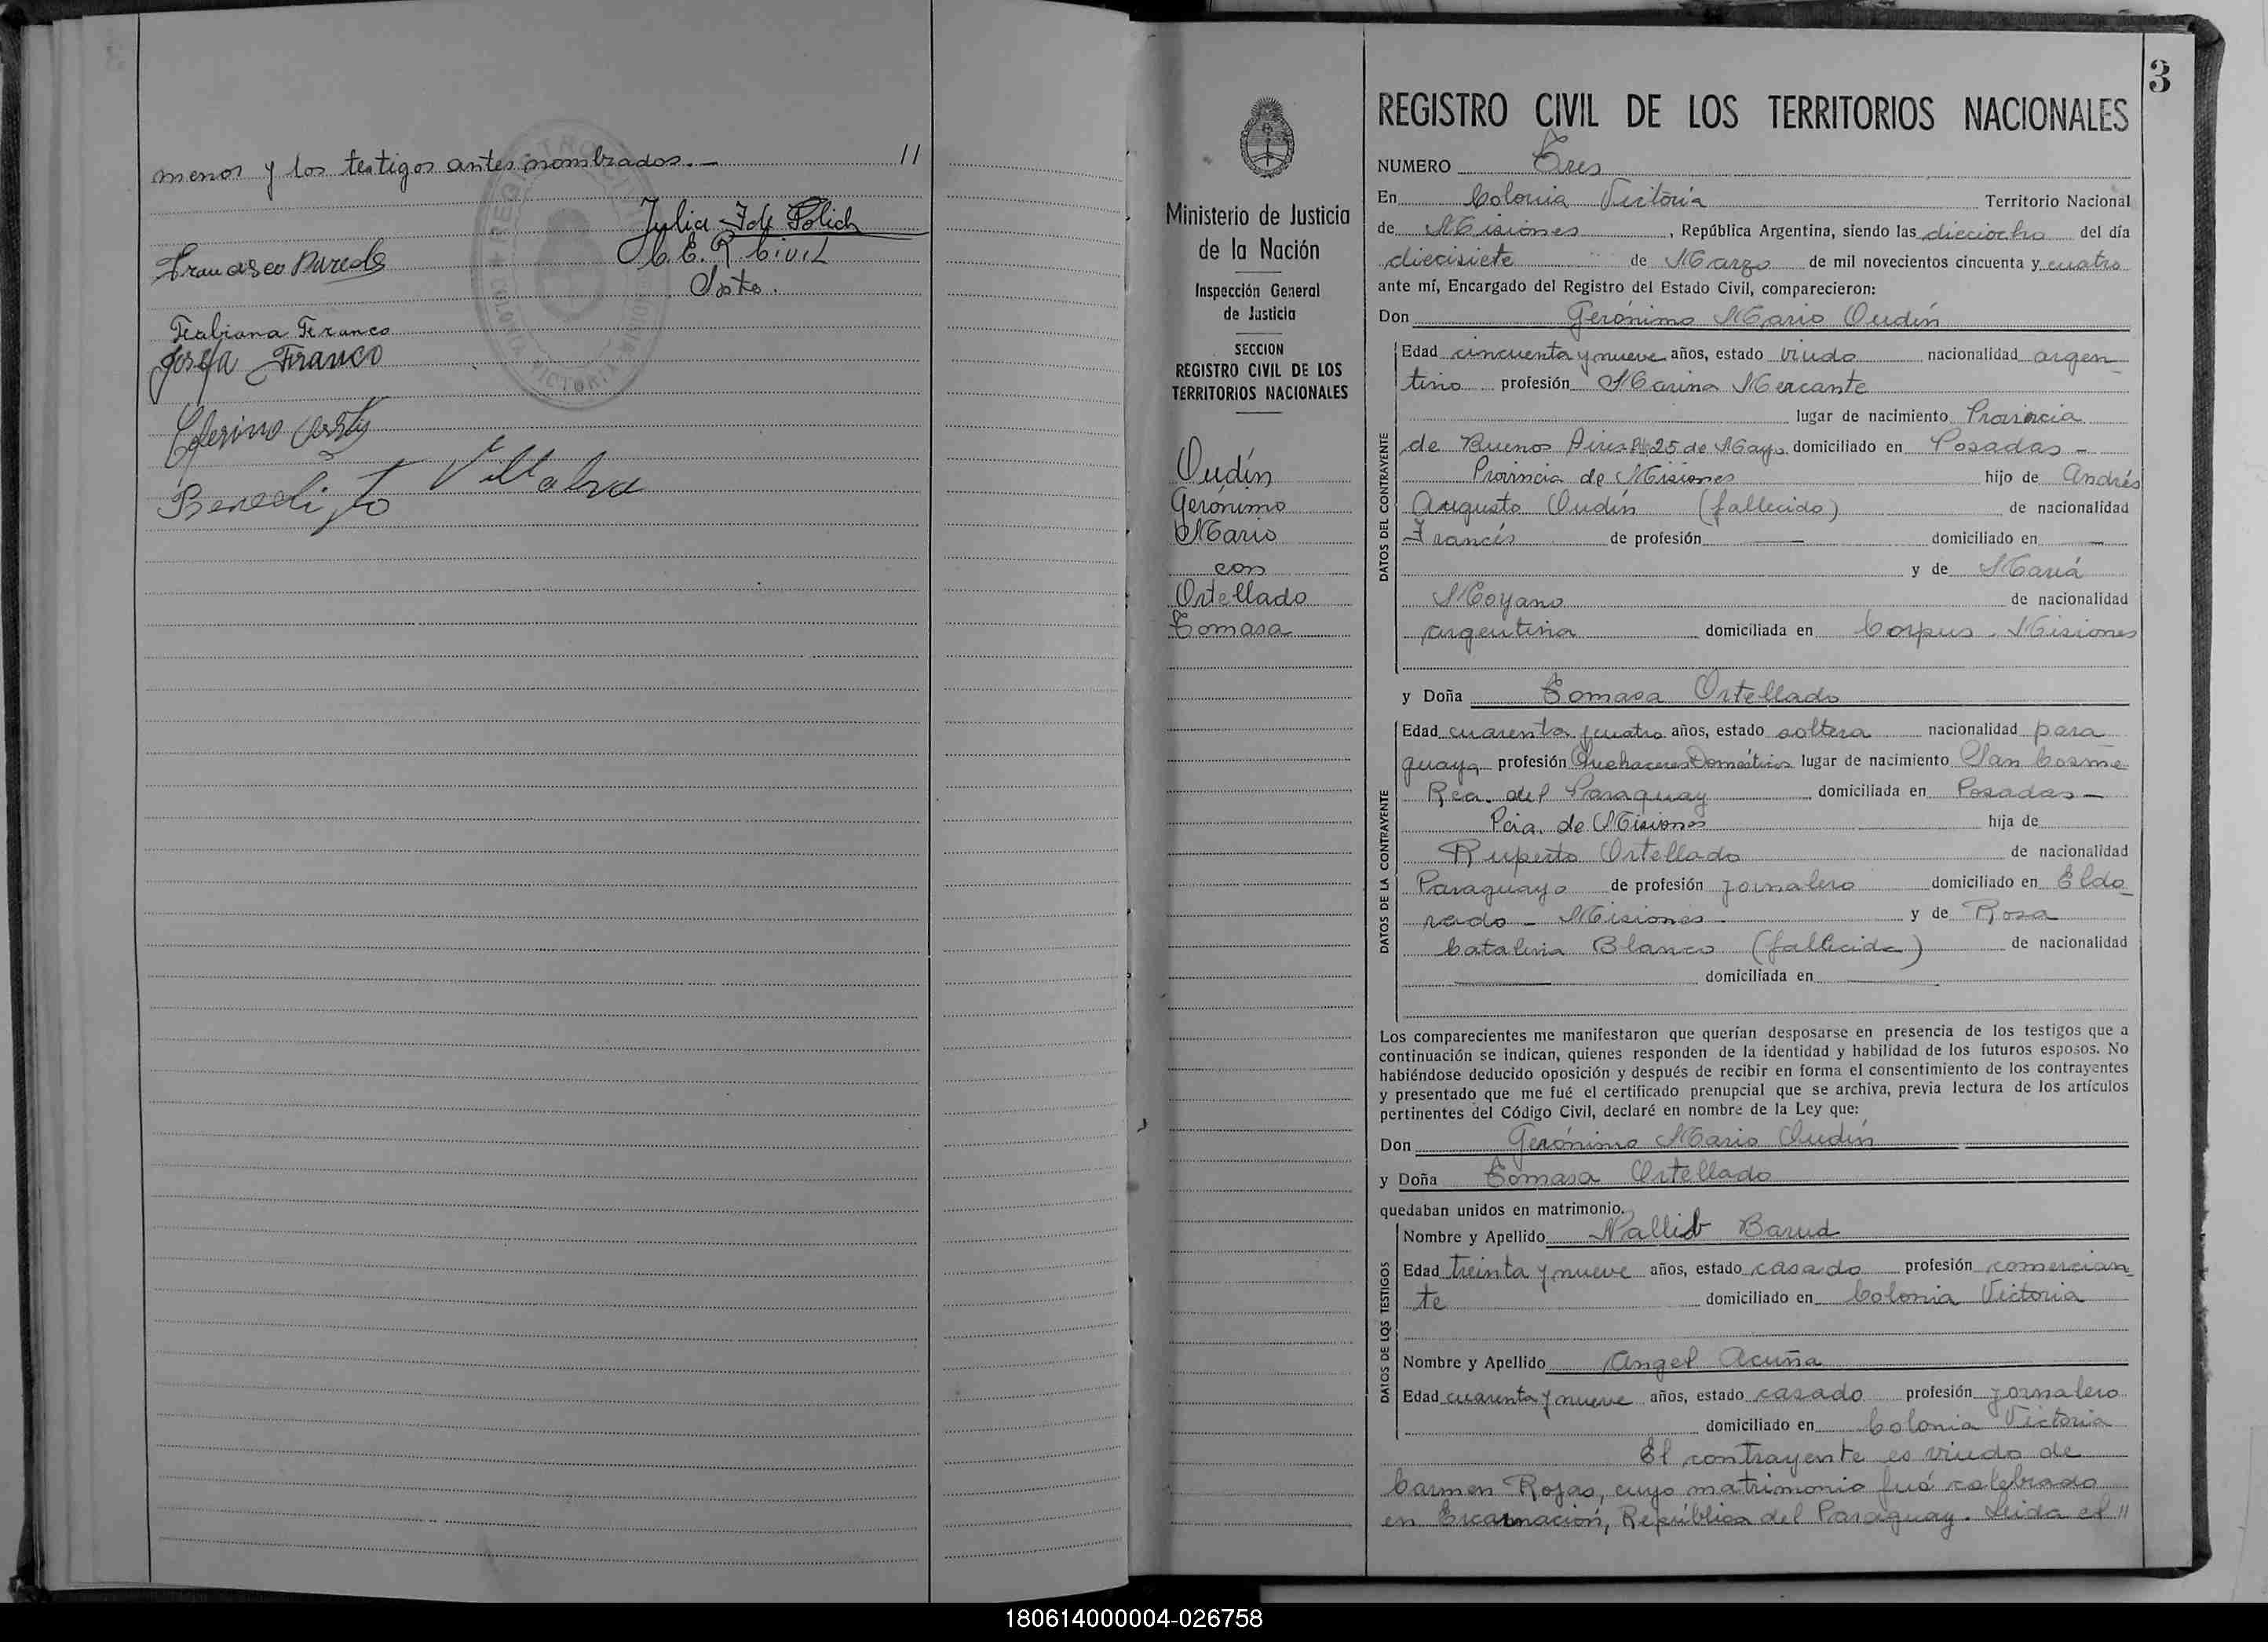 menos y los testigos antes nombrados.— //
Julia F de Polich
E. R. Civil
Francisco Paredes
Fabiana Franco
Josefa Franco
Ceferino
Benedicto Villalva
3
REGISTRO CIVIL DE LOS TERRITORIOS NACIONALES
NUMERO Tres
En Colonia Victoria Territorio Nacional
de Misiones, República Argentina, siendo las dieciocho del día
diecisiete de Marzo de mil novecientos cincuenta y cuatro
ante mí, Encargado del Registro del Estado Civil, comparecieron:
Don Gerónimo Mario Oudín
Edad cincuenta y nueve años, estado viudo nacionalidad argen
tino profesión Marina Mercante
lugar de nacimiento Provincia
de Buenos Aires 25 de Mayo domiciliado en Posadas -
Provincia de Misiones hijo de Andrés
Augusto Oudín (fallecido) de nacionalidad
Francés de profesión — domiciliado en —
y de María
Moyano de nacionalidad
argentina domiciliada en Corpus. Misiones
y Doña Tomasa Ortellado
Edad cuarenta y cuatro años, estado soltera nacionalidad para
guaya profesión Quehaceres Domésticos lugar de nacimiento San Cosme
Rca. del Paraguay domiciliada en Posadas —
Pcia. de Misiones hija de
Ruperto Ortellado de nacionalidad
Paraguayo de profesión jornalero domiciliado en Eldo
rado - Misiones - y de Rosa
Catalina Blanco (fallecida) de nacionalidad
— domiciliada en —
Los comparecientes me manifestaron que querían desposarse en presencia de los testigos que a
continuación se indican, quienes responden de la identidad y habilidad de los futuros esposos. No
habiéndose deducido oposición y después de recibir en forma el consentimiento de los contrayentes
y presentado que me fué el certificado prenupcial que se archiva, previa lectura de los artículos
pertinentes del Código Civil, declaré en nombre de la Ley que:
Don Gerónimo Mario Oudín
y Doña Tomasa Ortellado
quedaban unidos en matrimonio.
Nombre y Apellido Nallib Barud
Edad treinta y nueve años, estado casado profesión comercian
te domiciliado en Colonia Victoria
Nombre y Apellido Angel Acuña
Edad cuarenta y nueve años, estado casado profesión jornalero
domiciliado en Colonia Victoria
El contrayente es viudo de
Carmen Rojas, cuyo matrimonio fué celebrado
en Encarnación, República del Paraguay. Leida el //
DATOS DEL CONTRAYENTE
DATOS DE LA CONTRAYENTE
DATOS DE LOS TESTIGOS
Ministerio de Justicia
de la Nación
Inspección General
de Justicia
SECCION
REGISTRO CIVIL DE LOS
TERRITORIOS NACIONALES
Oudín
Gerónimo
Mario
con
Ortellado
Tomasa
180614000004-026758